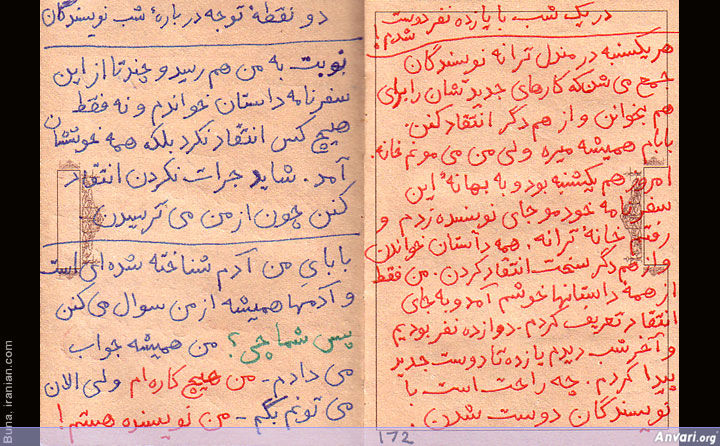 در یک شب با یازده نفر دوست
شدم!
هر یکشنبه در منزل ترانه نویسندگان
جمع می شن که کارهای جدیدشان را برای
هم بخوانن و از هم دگر انتقاد کنن.
بابام همیشه میره ولی من می مونم خانه.
امروز هم یکشنبه بود و به بهانهٔ این
سفرنامه خودمو جای نویسنده زدم و
رفتم خانهٔ ترانه. همه داستان خواندن
و از هم دگر سخت انتقاد کردن. من فقط
از همه داستانها خوشم آمد و به جای
انتقاد تعریف کردم. دوازده نفر بودیم
و آخر شب دیدم یازده تا دوست جدید
پیدا کردم. چه راحت است با
نویسندگان دوست شدن.
172
دو نقطهٔ توجه دربارهٔ شب نویسندگان
نوبت به من هم رسید و چند تا از این
سفرنامه داستان خواندم و نه فقط
هیچ کس انتقاد نکرد بلکه همه خوششان
آمد. شاید جرات نکردن انتقاد
کنن چون از من می ترسیدن.
بابای من آدم شناخته شده ای است
و آدمها همیشه از من سوال می کنن
پس شما چی؟ من همیشه جواب
می دادم - من هیچ کاره ام ولی الان
می تونم بگم - من نویسنده هستم!
Buna. iranian.com
Anvari.org